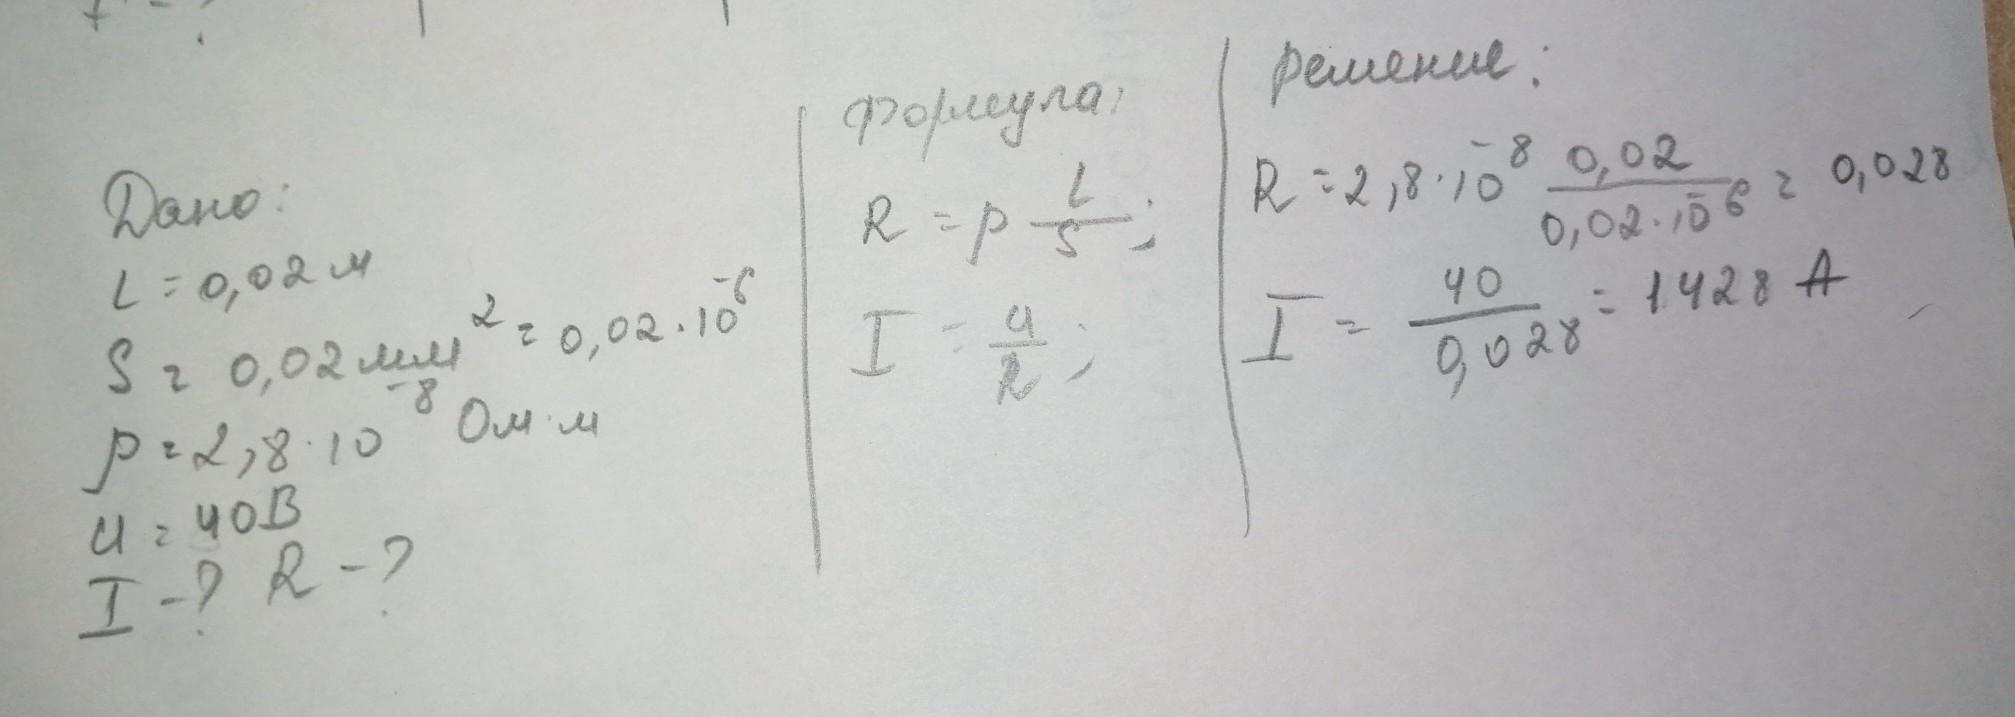 Дано:
L = 0,02 м
S = 0,02 мм² = 0,02·10⁻⁶
ρ = 2,8·10⁻⁸ Ом·м
U = 40В
I - ? R - ?
Формула:
R = ρ L/S;
I = U/R;
Решение:
R = 2,8·10⁻⁸ 0,02/0,02·10⁻⁶ = 0,028
I = 40/0,028 = 1428 А